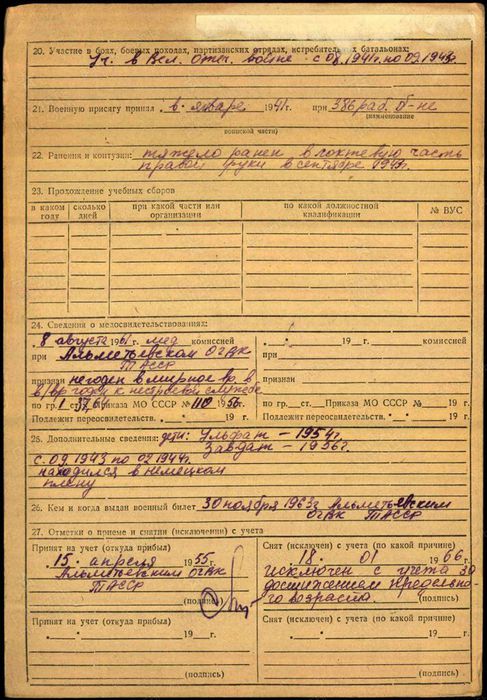 20. Участие в боях, боевых походах, партизанских отрядах, истребительных батальонах:
Уч. в Вел. Отеч. войне с 08.1941г. по 09.1943г.
21. Военную присягу принял в январе 1941г. при 386 раб. б-не
(наименование
воинской части)
22. Ранения и контузии: тяжело ранен в локтевую часть
правой руки в сентябре 1943г.
23. Прохождение учебных сборов
в каком году | сколько дней | при какой части или организации | по какой должностной квалификации | № ВУС
24. Сведения о медосвидетельствованиях:
8 августа 1961 г. мед комиссией
при Альметьевском ОГВК
ТАССР
признан негоден в мирное вр. в
в/вр годен к нестроевой службе
по гр. 1 ст. Приказа МО СССР № 110 1956 г.
Подлежит переосвидетельств. 19 г.
19 г. комиссией
при
признан
по гр. ст. Приказа МО СССР № 19 г.
Подлежит переосвидетельств. 19 г.
25. Дополнительные сведения: дети: Ульфат - 1954г.
Завдат - 1956г.
с 09.1943 по 02.1944г.
находился в немецком
плену
26. Кем и когда выдан военный билет 30 ноября 1963г Альметьевским
ОГВК ТАССР
27. Отметки о приеме и снятии (исключении) с учета
Принят на учет (откуда прибыл)
15. апреля 1955 г.
Альметьевским ОГВК
ТАССР
(подпись)
Снят (исключен) с учета (по какой причине)
18. 01 1966 г.
исключен с учета за
достижением предельно-
го возраста.
(подпись)
Принят на учет (откуда прибыл)
19 г.
(подпись)
Снят (исключен) с учета (по какой причине)
19 г.
(подпись)